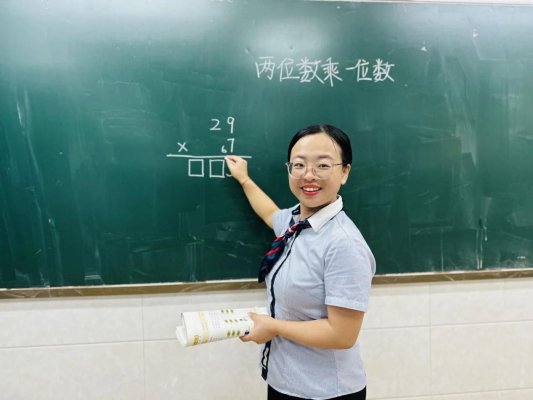 两位数乘一位数
29
× 67
□□